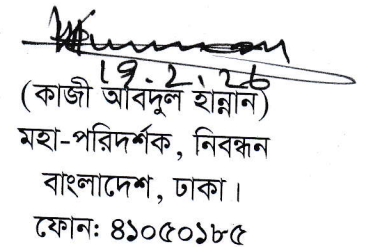 19.2.26
(কাজী আবদুল হান্নান)
মহা-পরিদর্শক, নিবন্ধন
বাংলাদেশ, ঢাকা।
ফোনঃ ৪১০৫০১৮৫